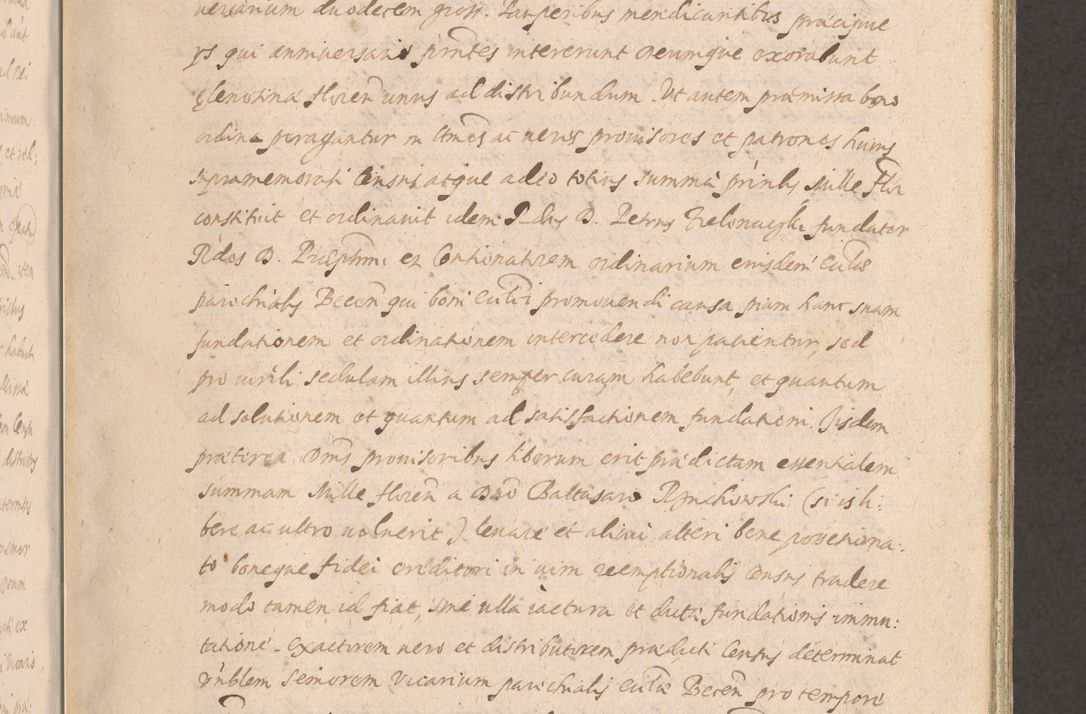 versarium duodecem gross. Pauperibus mendicantibus praecipue
ys qui anniversario prntes intererunt Deumque exorabunt
Elemosina floren unus ad distribundum. Ut autem praemissa bono
ordine peragantur in Ctores ac veros provisores et patronos huius
supramemorati Census atque adeo totius summae prinlis Mille Flor
constituit et ordinavit idem Rdus D. Petrus Zielonacyski fundator
Rdos D. Praephm et Contionatorem ordinarium eiusdem Ecclae
parochialis Becen qui boni Ecclici promovendi causa piam hanc suam
fundationem et ordinationem intercidere non patientur, sed
pro virili sedulam illius semper curam habebunt, et quantum
ad solutionem et quantum ad satisfactionem fundationi. Jisdem
praeterea Dnis provisoribus liberum erit praedictam essentialem
summam Mille floren a Dno Baltasaro Rynchowski (si is li:
bere ac ultro voluerit) levare et alicui alteri bene possessiona:
to boneque fidei creditori in vim reemptionalis Census tradere
modo tamen id fiat, sine ulla iactura et dictae fundationis immu:
tatione. Exactorem vero et distributorem praedicti Census determinat
Vnblem Seniorem Vicarium parochialis Ecclae Becen pro tempore